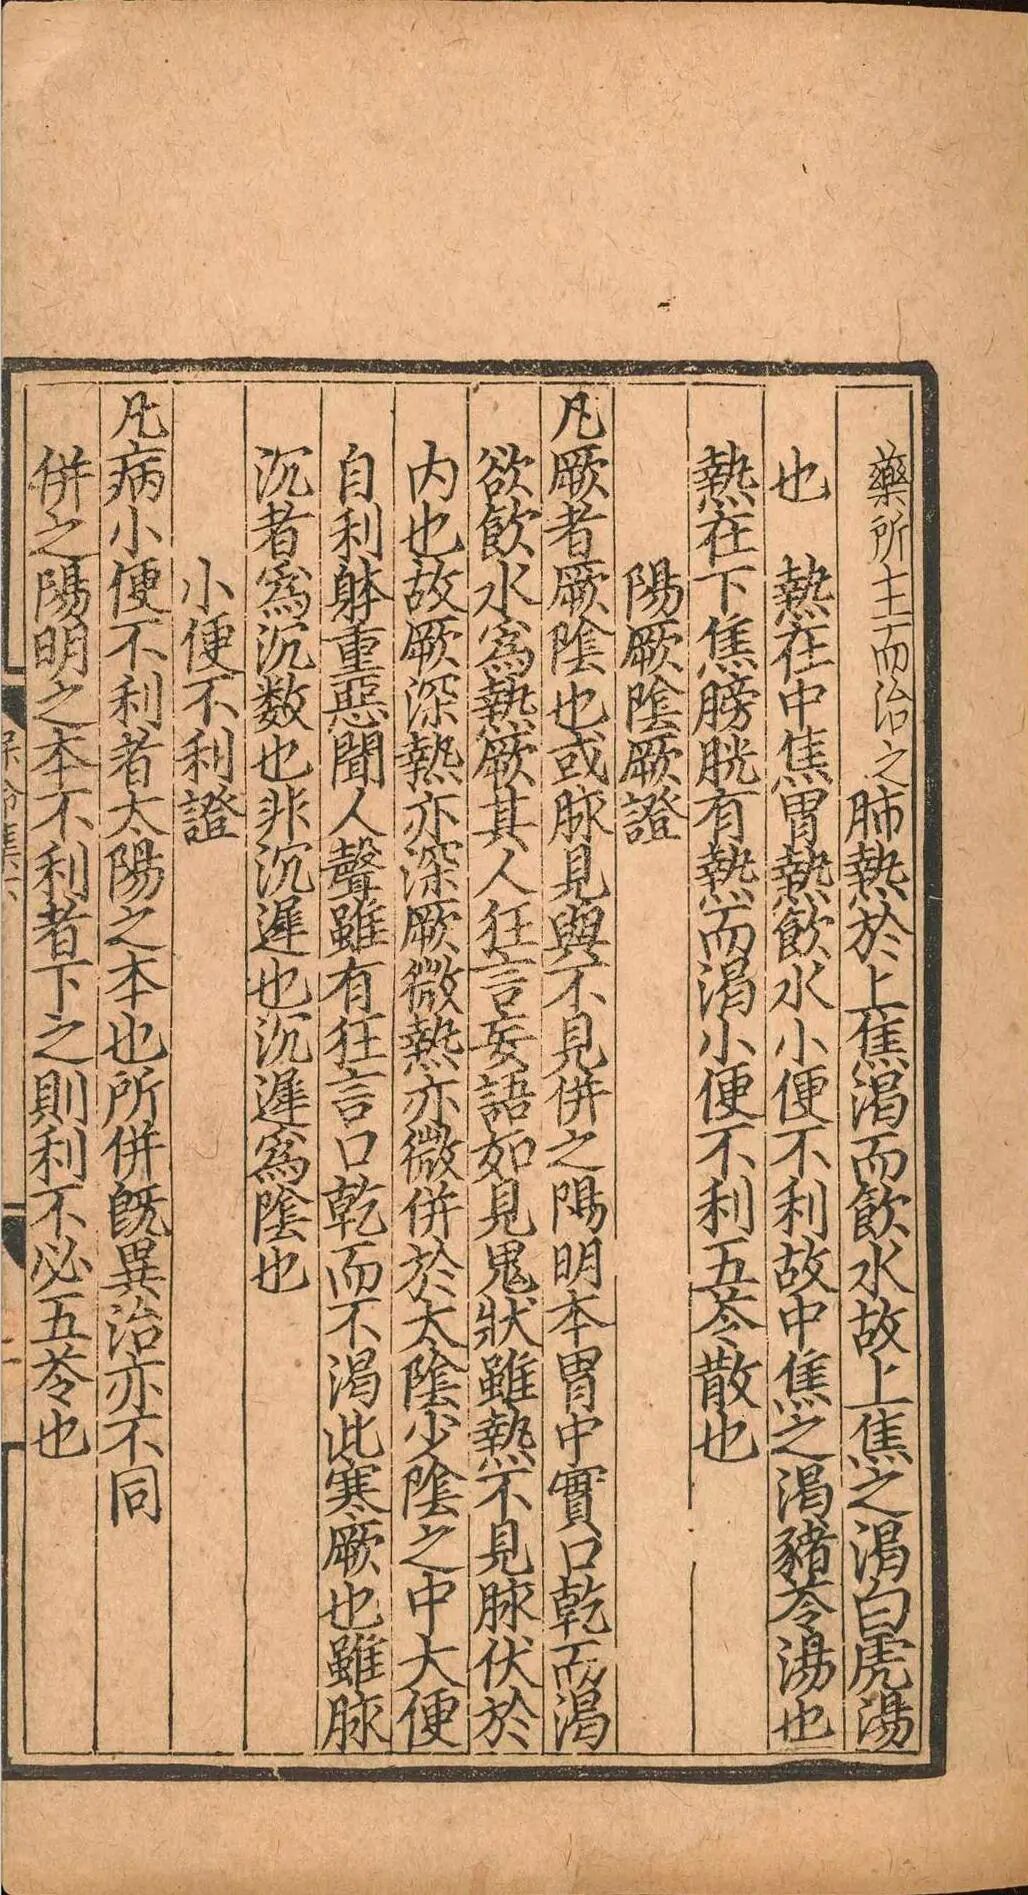 藥所主而治之肺熱於上焦渴而飮水故上焦之渴白虎湯
也　熱在中焦胃熱飮水小便不利故中焦之渴豬苓湯也
熱在下焦膀胱有熱而渴小便不利五苓散也
陽厥陰厥證
凡厥者厥陰也或脉見與不見併之陽明本胃中實口乾而渴
欲飮水爲熱厥其人狂言妄語如見鬼狀雖熱不見脉伏於
内也故厥深熱亦深厥微熱亦微併於太陰少陰之中大便
自利躰重惡聞人聲雖有狂言口乾而不渴此寒厥也雖脉
沉者爲沉数也非沉遲也沉遲爲陰也
小便不利證
凡病小便不利者太陽之本也所併旣異治亦不同
併之陽明之本不利者下之則利不必五苓也